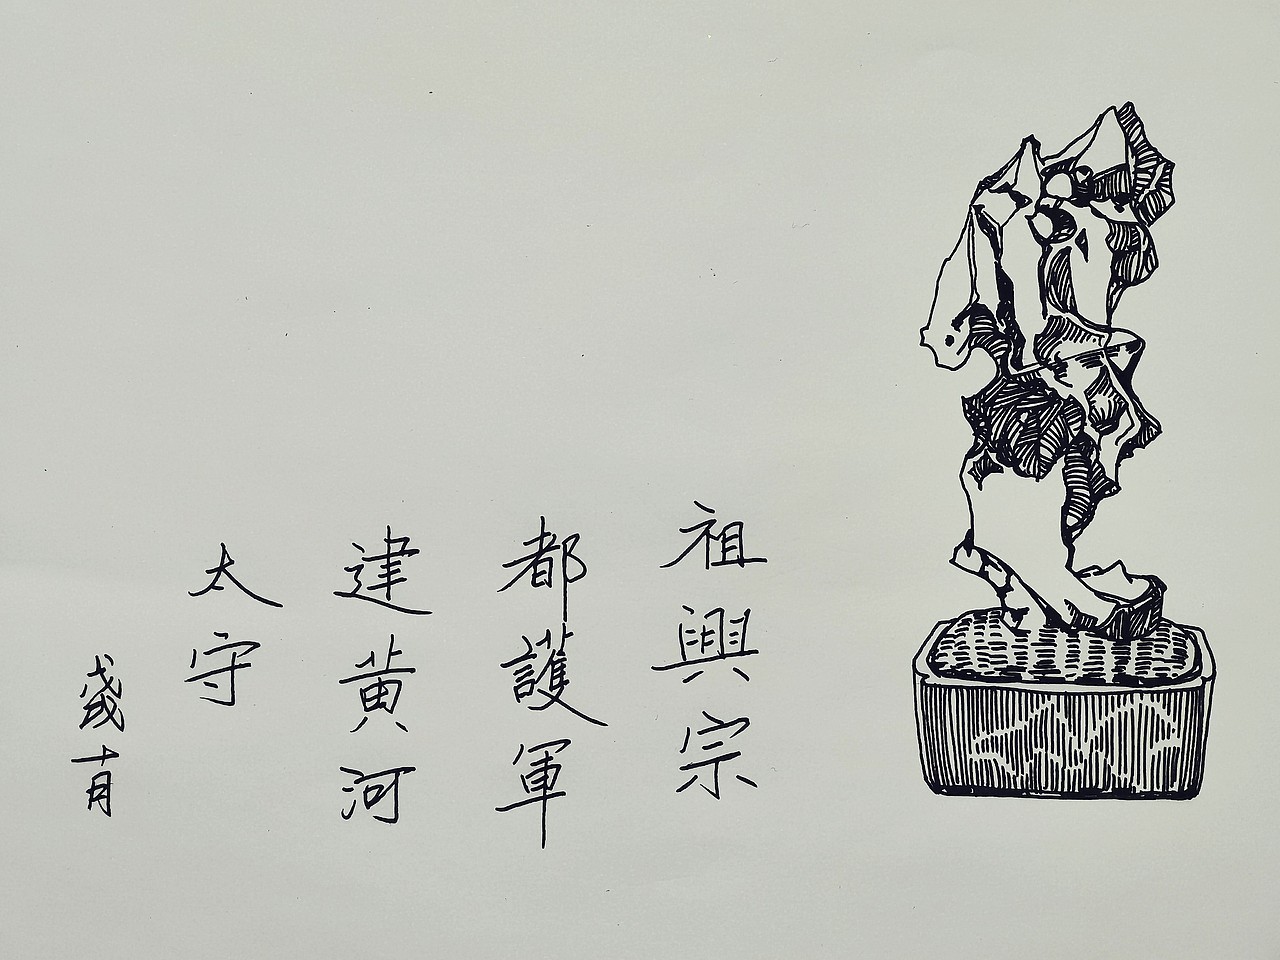 祖興宗
都護軍
建黃河
太守
歲十月